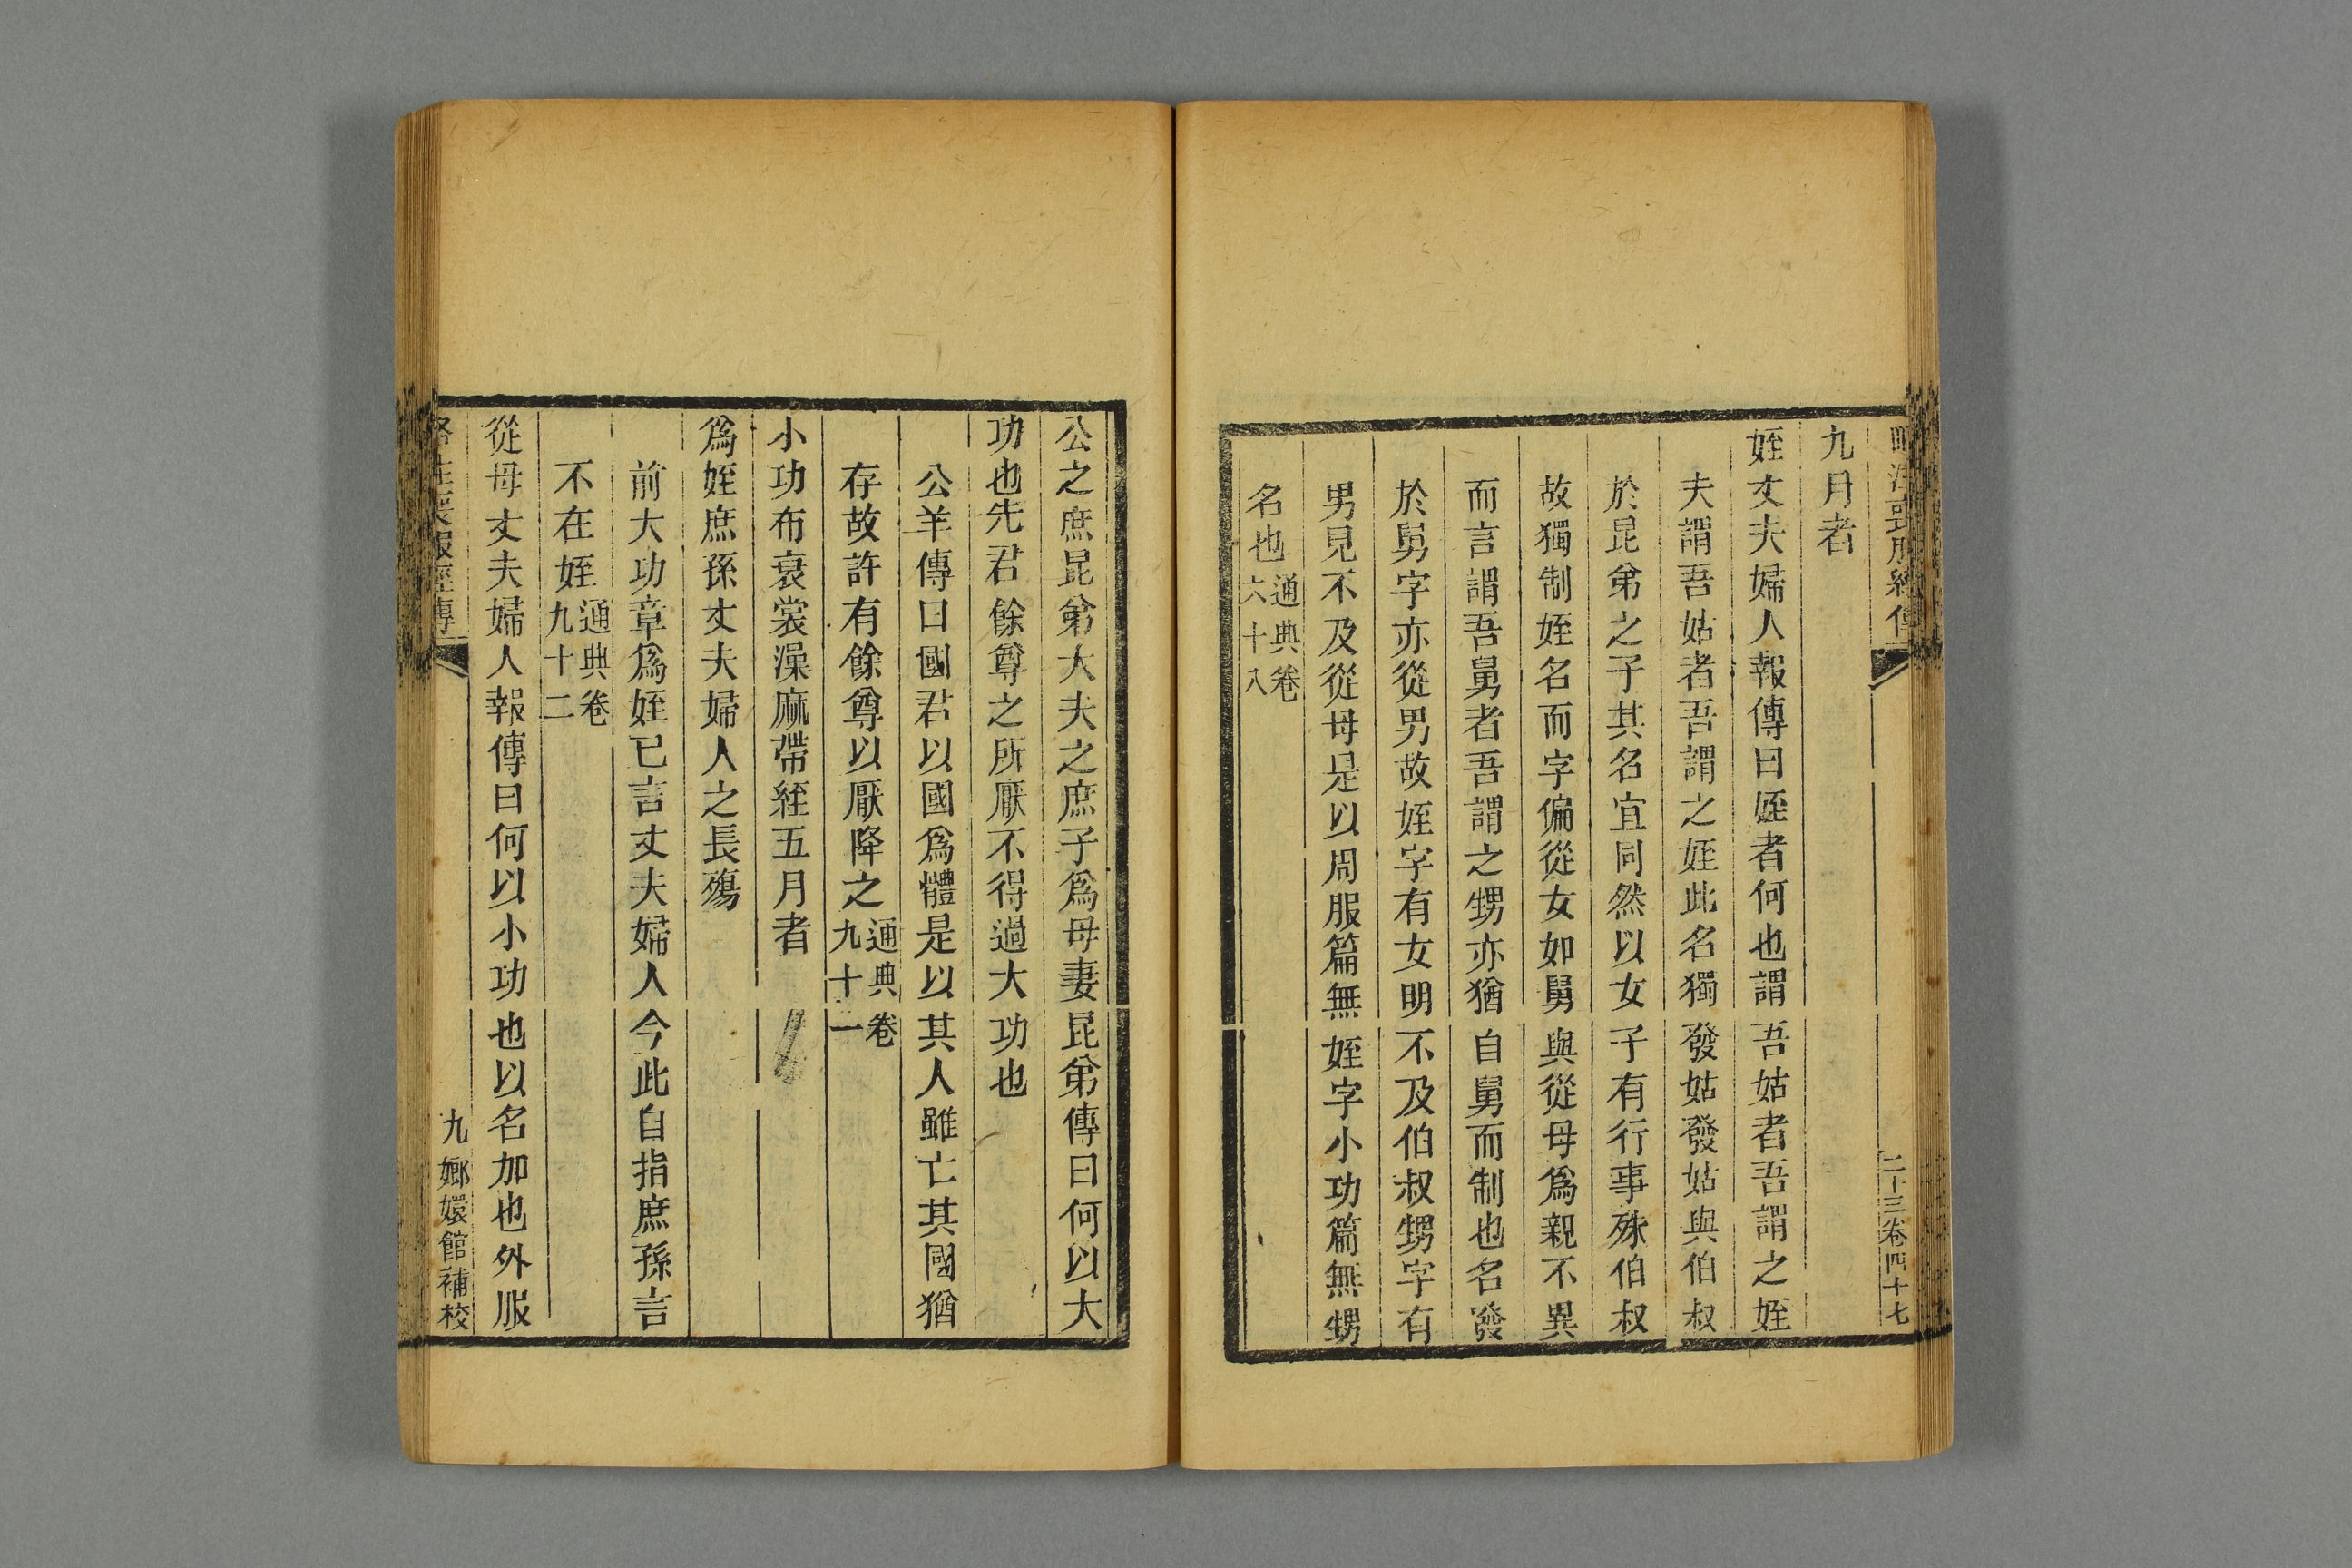 略注喪服經傳
二十三卷四十七
九月者
姪丈夫婦人報傳曰姪者何也謂吾姑者吾謂之姪
夫謂吾姑者吾謂之姪此名獨發姑發姑與伯叔
於昆弟之子其名宜同然以女子有行事殊伯叔
故獨制姪名而字偏從女如舅與從母爲親不異
而言謂吾舅者吾謂之甥亦猶自舅而制也名發
於舅字亦從男故姪字有女明不及伯叔甥字有
男見不及從母是以周服篇無姪字小功篇無甥
名也通典卷六十八
公之庶昆弟大夫之庶子爲母妻昆弟傳曰何以大
功也先君餘尊之所厭不得過大功也
公羊傳曰國君以國爲體是以其人雖亡其國猶
存故許有餘尊以厭降之通典卷九十一
小功布衰裳澡麻帶絰五月者
爲姪庶孫丈夫婦人之長殤
前大功章爲姪已言丈夫婦人今此自指庶孫言
不在姪通典卷九十二
從母丈夫婦人報傳曰何以小功也以名加也外服
略注喪服經傳
九 嫏嬛館補校